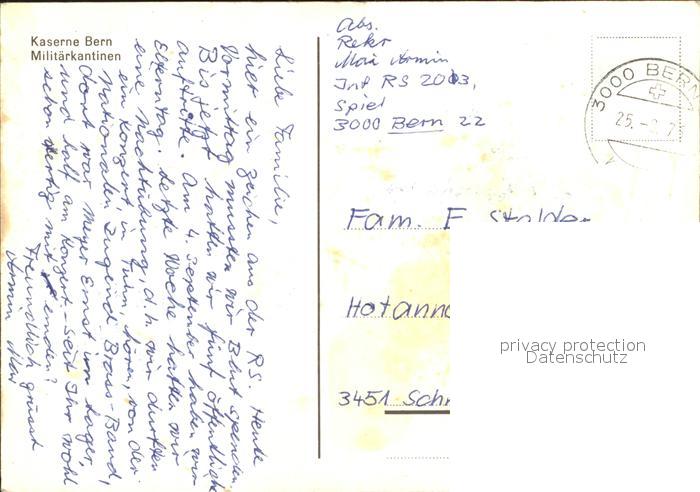 Kaserne Bern
Militärkantinen
Liebe Familie,
hier ein Zeichen aus der RS. Heute
Vormittag mussten wir Blut spenden.
Bis jetzt hatten wir fünf öffentliche
Auftritte. Am 4. September haben wir
Elterntag. Letzte Woche hatten wir
eine Nachtübung, d.h. wir durften
ein Konzert, in Thun hören, von der
Nationalen Jugend Brass-Band,
dort war Meyer Ernst im Lager,
und half am Konzert. - Seit Ihr wohl
schon fertig mit
Freundlich grüsst
Armin
Abs.
Rekr
Armin
Inf RS 203,
Spiel
3000 Bern 22
3000 BERN
25.
Fam.
3451
privacy protection
Datenschutz